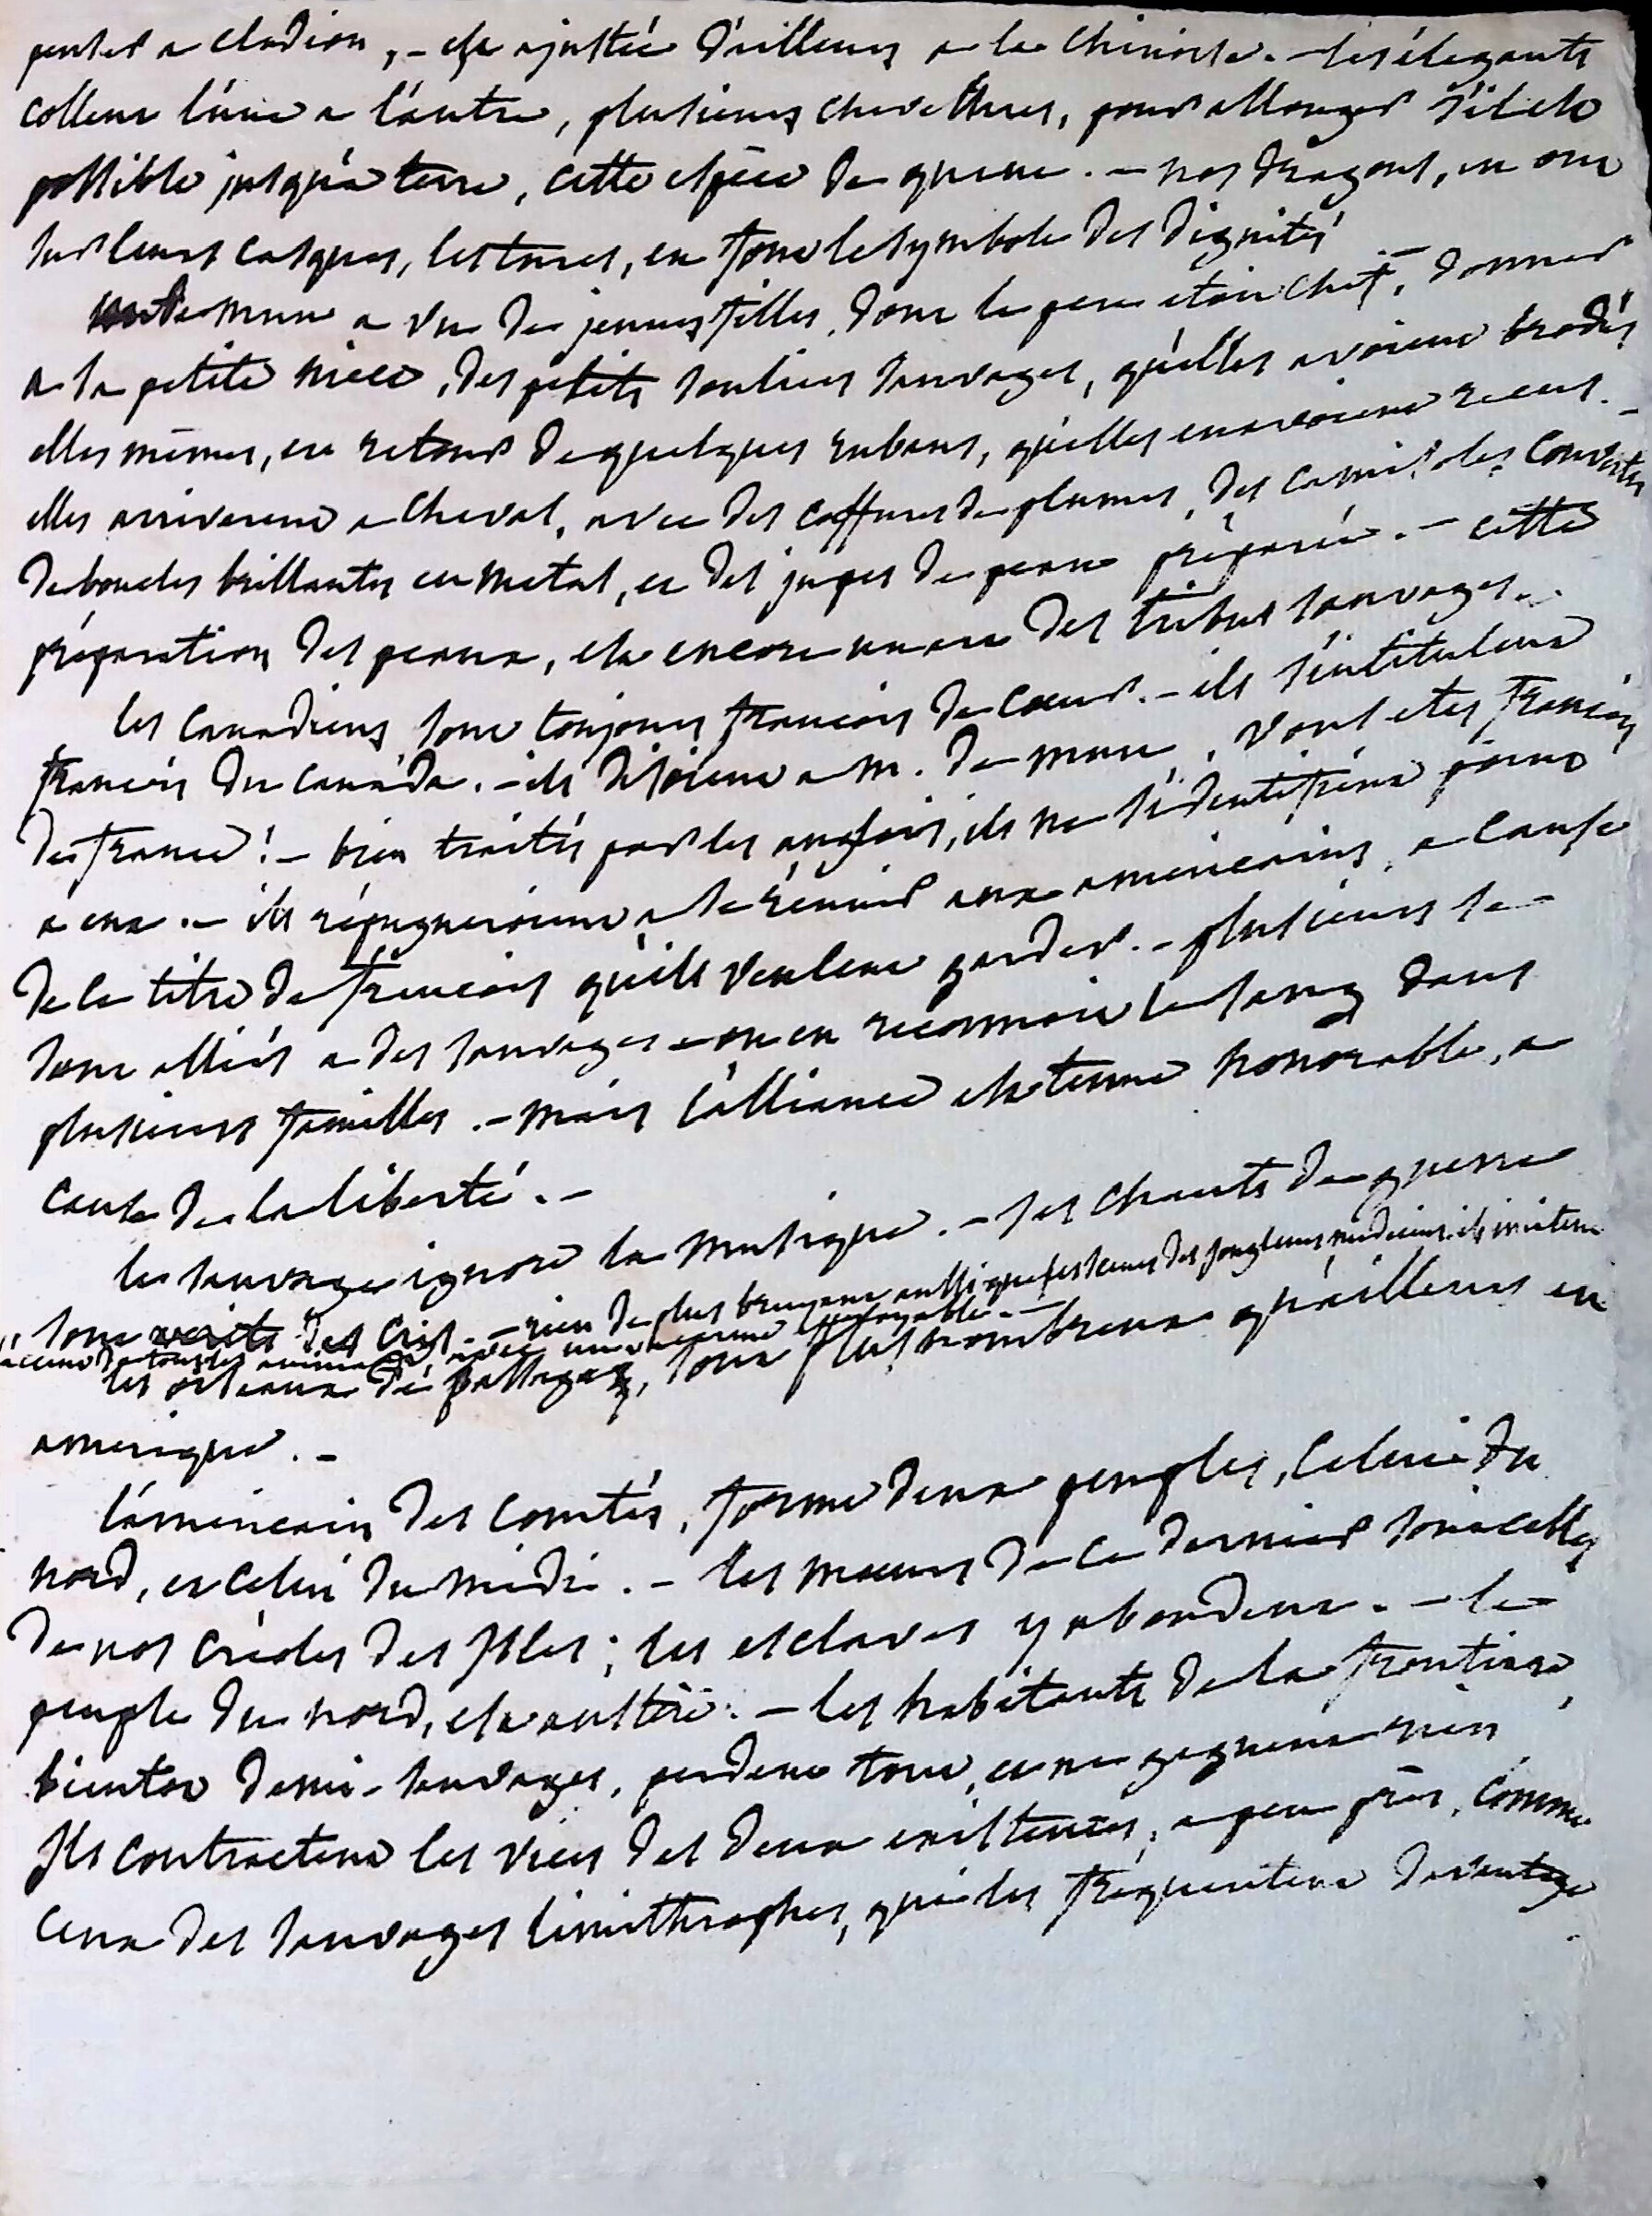 a clodion, - est ajustée d'ailleurs a la chinoise. - les élégants
collent l'une a l'autre, plusieurs chevelures, pour allonger s'il est
possible jusqu'à terre, cette espèce de queue. - nos dragons, en ont
sur leurs casques, les turcs, en font le symbole des dignités
mune a vu de jeunes filles, dont le pere etoit chef, donner
a sa petite niece, des petits souliers sauvages, qu'elles avoient brodés
elles mêmes, en retour de quelques rubans, qu'elles en avoient recus. -
elles arriverent a cheval, avec des coffures de plumes, des camisoles couvertes
de boucles brillantes en metal, et des jupes de peau préparée. - cette
préparation des peaux, est encore un art des tribus sauvages.
les canadiens sont toujours francois de coeur. - ils s'intitulent
francois du canada. - ils disoient a m. de mun, vous etes francois
de france! - bien traités par les anglois, ils ne s'identifient point
a eux. - ils répugneroient a se réunir aux americains, a cause
de ce titre de francois qu'ils veulent garder. - plusieurs se
sont alliés a des sauvages - on en reconnoit le sang dans
plusieurs familles. - mais l'alliance est tenue honorable, a
cause de la liberté. -
le sauvage ignore la musique. - ses chants de guerre
sont des cris. - rien de plus bruyant aussi que les scenes des jongleurs medecins. ils imitent
l'accent de tous les animaux, avec un vacarme effroyable. -
les oiseaux de passage, sont plus nombreux qu'ailleurs en
amerique. -
l'américain des comtés, forme deux peuples, celui du
nord, et celui du midi. - les moeurs de ce dernier sont celles
de nos créoles des Isles; les esclaves y abondent. - le
peuple du nord, est austère. - les habitants de la frontiere,
bientot demi-sauvages, perdent tout, et ne gagnent rien
Ils contractent les vices des deux existences, a peu près, comme
ceux des sauvages limithrophes, qui les fréquentent davantage